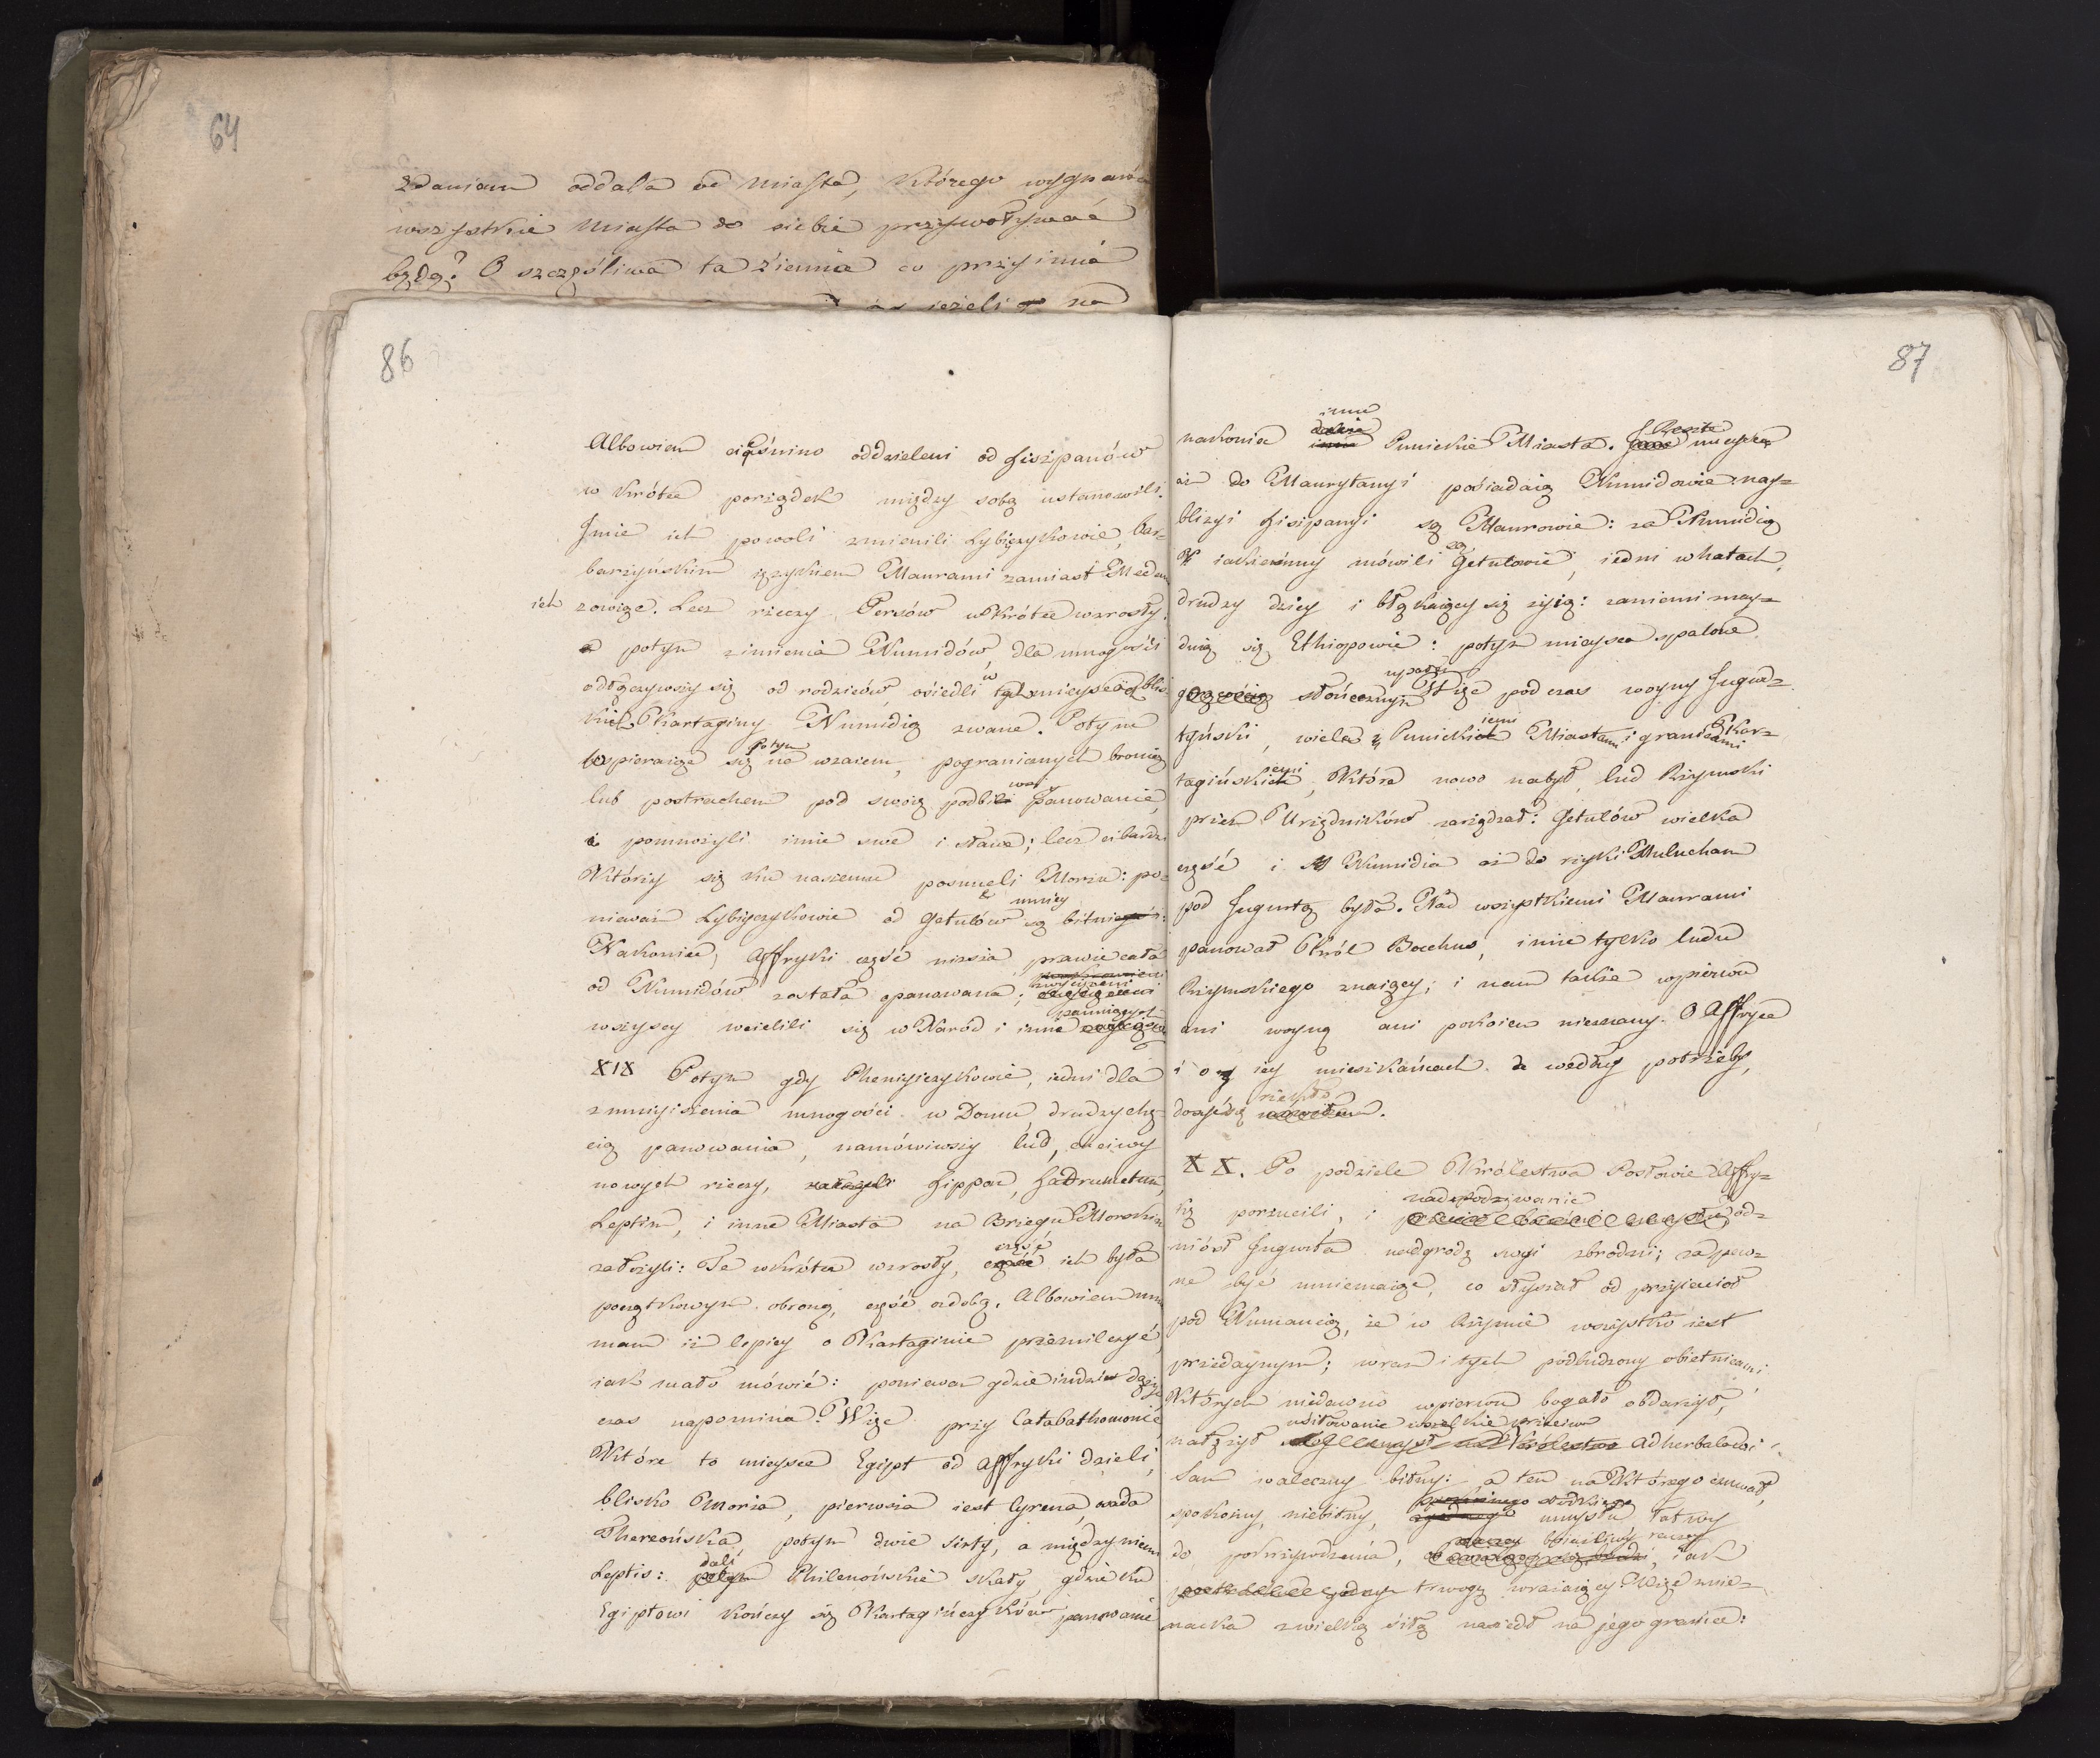 64
zdaniem oddala od Miasta, którego wygnańca
wszystkie Miasta do siebie przywoływać
będą? O szczęśliwa ta ziemia co przyimie
ieżeli na
86
Albowiem cieśnino oddzieleni od Hiszpanów
w krótce porządek między sobą ustanowili.
Jmie ich powoli zmienili Lybiyczykowie, bar=
barzyńskim ięzykiem Maurami zamiast Medam
ich zowiąc. Lecz rzeczy Persów wkrótce wzrosły.
a potym zimienia Numidów, dla mnogości
odłączywszy się od rodziców, osiedli w miejsca blis
kie Kartaginy Numidią zwane. Potym
wspieraiąc się potym na wzaiem, pogranicznych bronią
lub postrachem pod swoią podbili panowanie,
i pomnożyli imie swe i sławe; lecz ci bardzi
Którzy się ku naszemu posuneli Morzu: po=
nieważ Lybiyczykowie od Getulów są mniey bitni:
Nakoniec, Affryki część niższa prawie cała
od Numidów została opanowana; zwycięzeni
wszyscy wcielili się w Naród i imie panuiących
XIX Potym gdy Phenicyczykowie, iedni dla
zmniyiszenia mnogości w Domu drudzy chę
cią panowania, namówiwszy lud, chciwy
nowych rzeczy, założyli Hippon, Hadrumetum,
Leptim, i inne Miasta na Brzegu Morskim
założyli: Te wkrótce wzrosły, część ich była
początkowym obroną, część ozdobą. Albowiem mni
mam iż lepiey o Kartaginie przemilczyć,
iak mało mówić: ponieważ gdzie indziei dążyć
czas napomina. Więc przy Catabathmonie
Które to mieysce Egipt od Affryki dzieli,
blisko Morza, pierwsza iest Cyrena, osada
Thereońska, potym dwie Sirty, a między niemi
Leptis: dali Philenońskie skały, gdzie ku
Egiptowi kończy się Kartagińczyków panowanie
87
nakoniec inne Punickie Miasta. Reszte mieysca
aż do Maurytanyi posiadaią Numidowie nay=
bliżyi Hiszpanyi są Maurowie: za Numidią
iakieśmy mówili są Getulowie, iedni whatach,
drudzy dzicy i błąkaiący się żyią: zaniemi znay=
duią się Ethiopowie: potym mieysca spalone
upałem słonecznym. Więc podczas woyny Jugur=
tyński, wiele Punickiemi Miastami i granicami Kar=
tagińskiemi, Które nowo nabył, lud Rzymski
przez Urzędników zarządzał: Getulów wielka
część i Numidia aż do rzyki Muluchan
pod Jugurtą była. Nad wszystkiemi Maurami
panował Król Bocchus, imie tylko ludu
Rzymskiego znaiący; i nam także wpierw
ani woyną ani pokoiem nieznany. O Affryce
i o iey mieszkańcach według potrzeby,
dosyć się rzekło.
XX. Po podziele Królestwa Posłowie Affry=
kę porzucili, i nadspodziwanie od=
niósł Jugurta nadgrodę swoi zbrodni; zapew=
ne być mniemaiąc, co słyszał od przyiaciół
pod Numancią, że w Rzymie wszystko iest
przedaynym; wraz i tych podłudzony obietnicami,
Których niedawno wpierw bogato obdarzył,
natężył usiłowanie wszelkie przeciw Adherbalowi.
Sam waleczny bitny: a ten na Którego czuwał,
spokoiny, niebitny, słodkiego umysłu łatwy
do pokrzywdzenia, boiaźliwy raczy, iak
trwogę wraiaiący. Więc znie=
nacka zwielką siłą naszedł na jego granice: